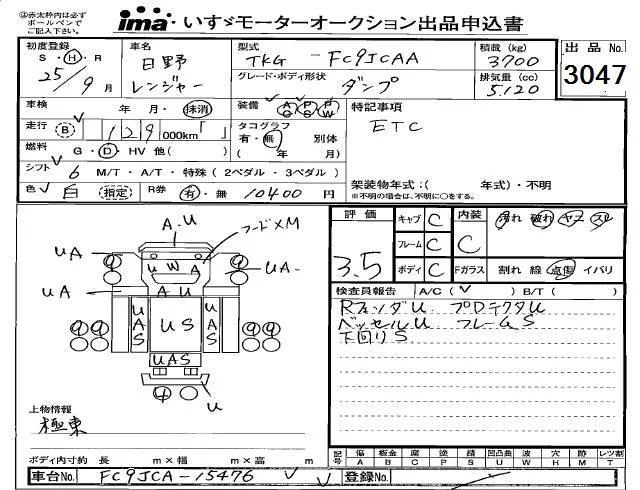 ②赤太枠内は必ず
ボールペンで
ご記入下さい。
ima・いすゞモーターオークション出品申込書
初度登録 S・H・R 25年 9月
車名 日野 レンジャー
型式 TKG - FC9JCAA
積載 (kg) 3700
グレード・ボディ形状 ダンプ
排気量 (cc) 5.120
出品 No. 3047
車検 年 月・抹消
装備 AC PS PW
特記事項
ETC
走行 B 129 000km「 」
タコグラフ 有・無 別体 ( 年 月)
燃料 G・D・HV 他( )
シフト 6 M/T・A/T・特殊 (2ペダル・3ペダル)
架装物年式:( 年式)・不明
※不明の場合は、不明に○をする。
色 白 (指定) R券 有・無 10400円
評価 3.5
キャブ C
フレーム C
ボディ C
内装 C 汚れ 破れ ヤケ スレ
Fガラス 割れ 線 点傷 イバリ
検査員報告 A/C( ✓ ) B/T( )
RフェンダU プロテクタU
ベッセルU フレームS
下回りS
A.U
フードXM
UA
U W A
UA
UA
A U
UAS
US
UAS
UAS
U
上物情報
極東
ボディ内寸約 長 m×幅 m×高 m
記号 傷 A 板金 B 腐 C 塗 P 錆 S 凹凸曲 U 波 W 穴 H 跡 M レツ割 T
車台No. FC9JCA-15476
登録No.